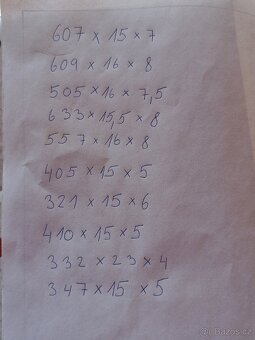 607 × 15 × 7
609 × 16 × 8
505 × 16 × 7,5
633 × 15,5 × 8
557 × 16 × 8
405 × 15 × 5
321 × 15 × 6
410 × 15 × 5
332 × 23 × 4
347 × 15 × 5